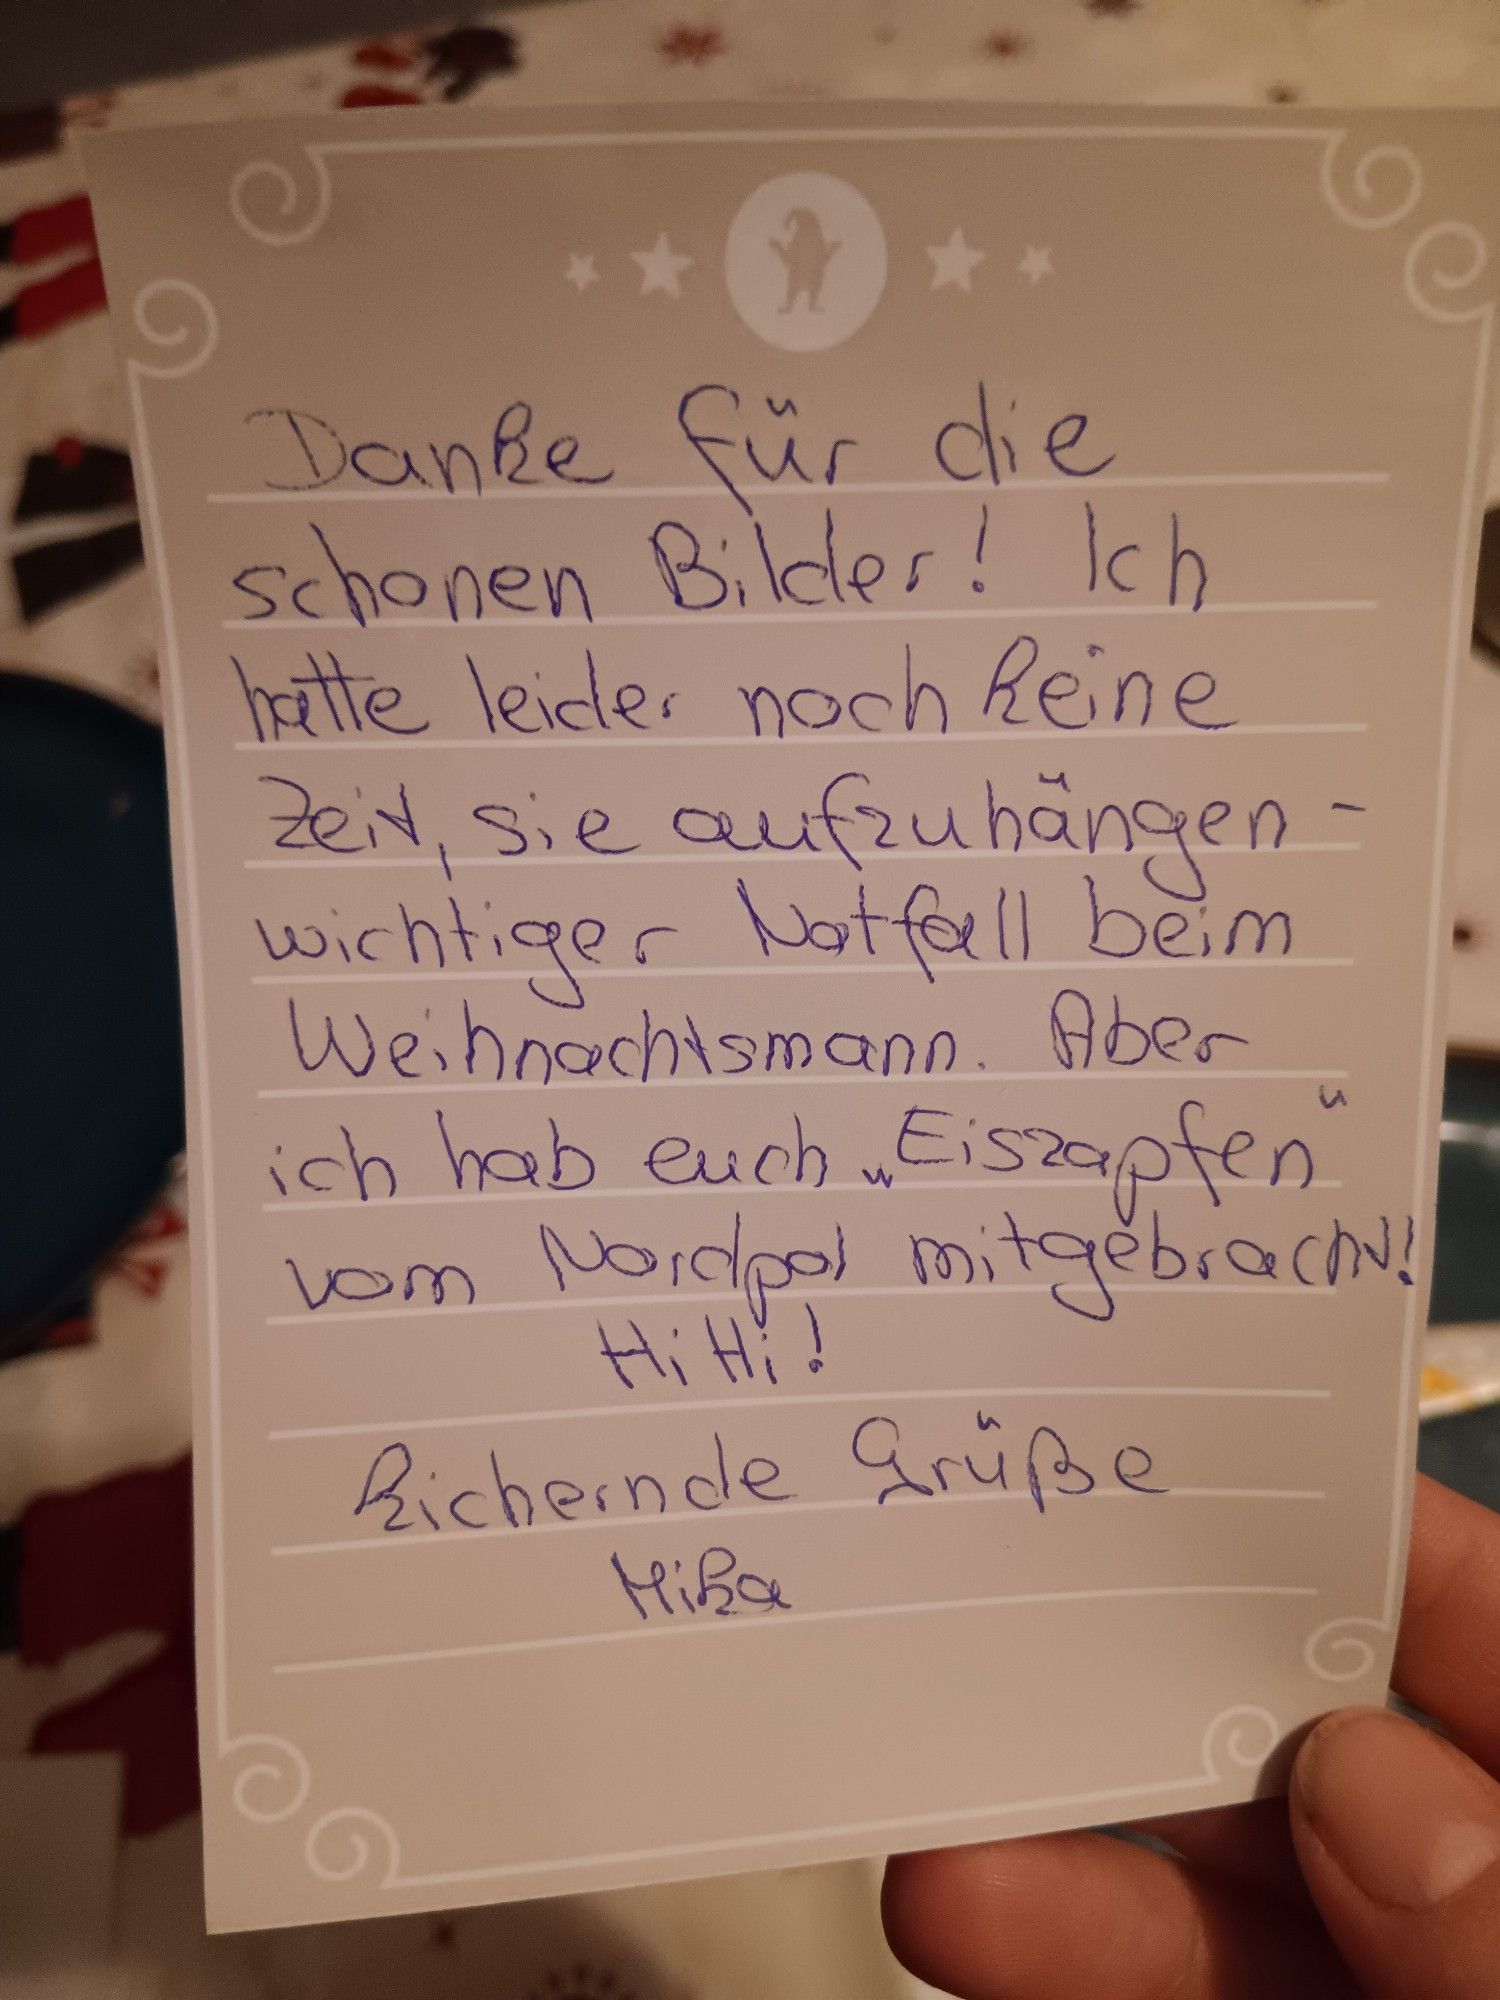 Danke für die
schonen Bilder! Ich
hatte leider noch keine
Zeit, sie aufzuhängen -
wichtiger Notfall beim
Weihnachtsmann. Aber
ich hab euch „Eiszapfen“
vom Nordpol mitgebracht!
Hi Hi!
Kichernde Grüße
Mika